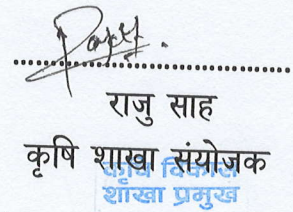 राजु साह
कृषि शाखा संयोजक
कृषि विकास
शाखा प्रमुख